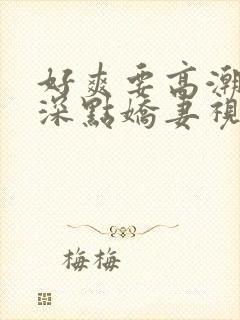 好爽要高潮
深點嬌妻視
梅梅